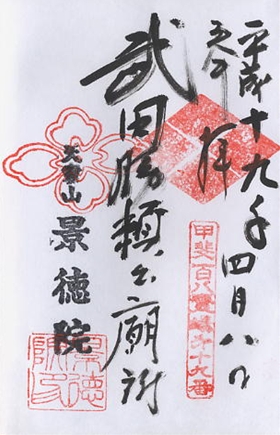 平成十九年四月八日
奉拝
甲斐百八霊場第十九番
武田勝頼公廟所
天童山
景徳院
景徳
院印